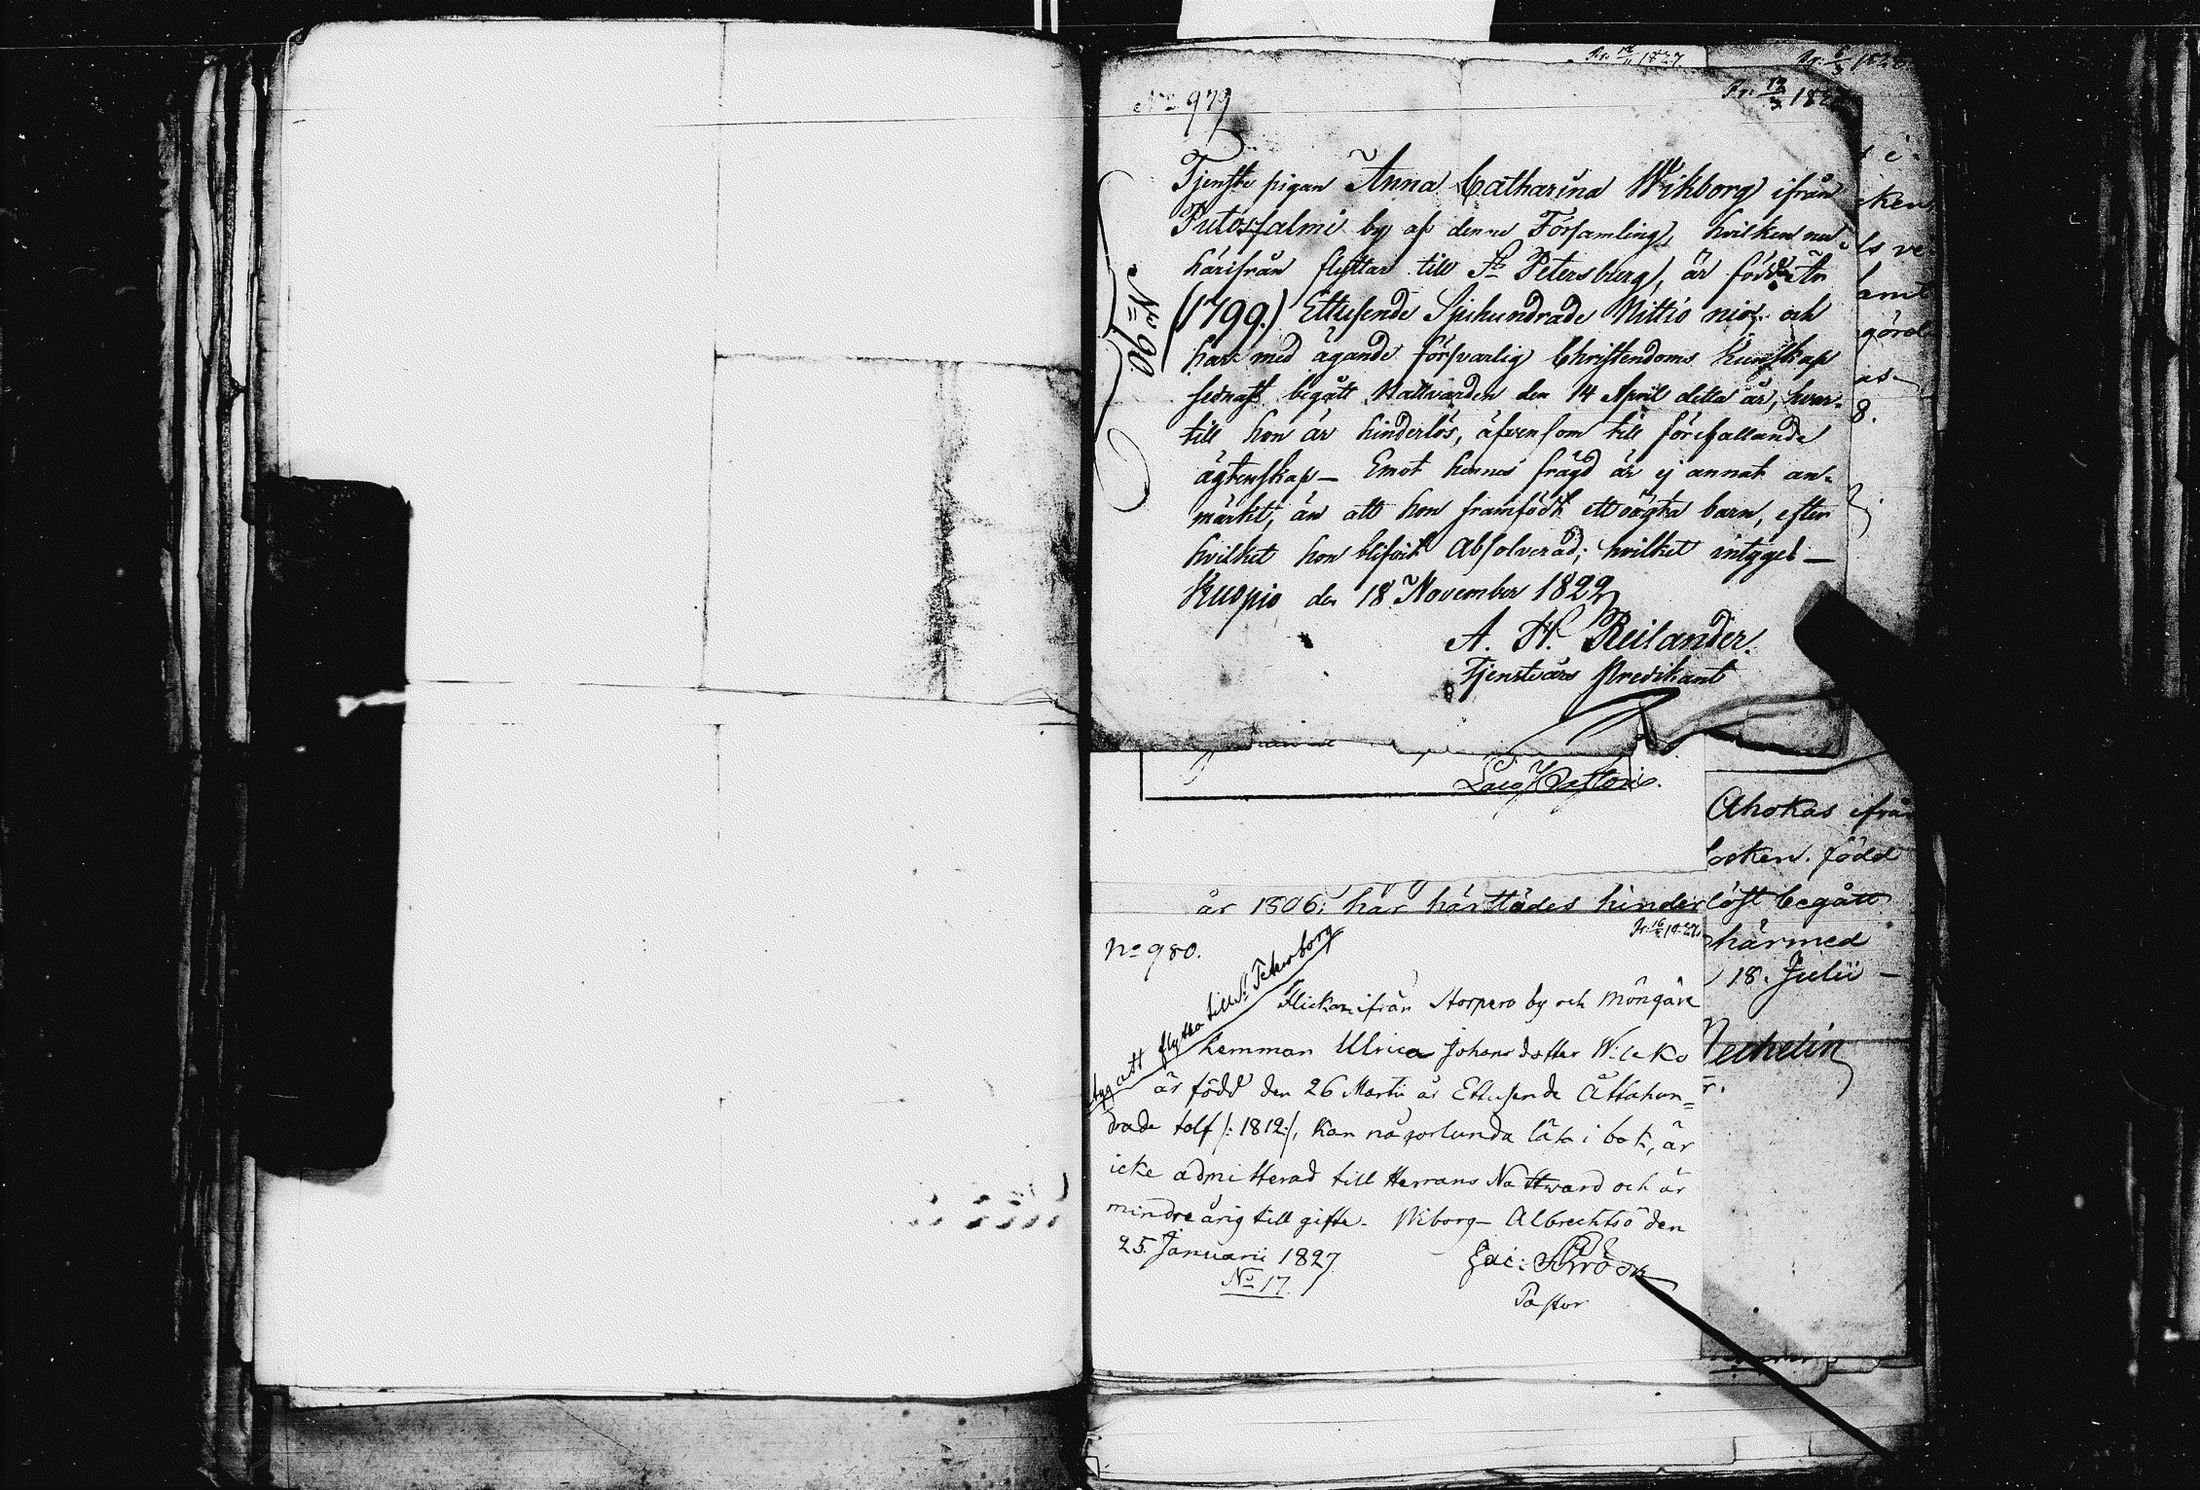 Fr. 12/11 1827
Fr. 6/3
Fr. 12/3 182
No 979
Tjenste pigan Anna Catharina Wikborg ifrån
Putossalmi by af denna Församling, hvilken nu
härifrån flyttar till St Petersburg, är född År
(1799.) Ettusende Sjuhundrade Nittio nio, och
har med ägande försvarlig Christendoms kunskap
sednast begått Nattvarden den 14 April detta år, hvar=
till hon är hinderlös, äfvensom till förefallande
ägtenskap— Emot hennes frägd är ej annat an=
märkt, än att hon framfödt ett oägta barn, efter
hvilket hon blifvit Absolverad; hvilket intygas—
Kuopio den 18 November 1822
A. H. Reilander.
Tjenstgörs Predikant
No 90.
Pastoris.
Ahokas ifrån
socken. född
år 1806; har härstädes hinderlöst begått
härmed
18. Julii —
echelin
No 980.
att flytta till St Petersborg
Flickan ifrån Storpero by och Möngäre
hemman Ulrica Johansdotter Wilcko
är född den 26 Martii år Ettusende Åttahun=
drade tolf /: 1812:/, kan någorlunda läsa i bok, är
icke admitterad till Herrans Nattward och är
mindreårig till gifte. Wiborg— Albrechtsö den
25. Januarii 1827
No 17.
Pastor